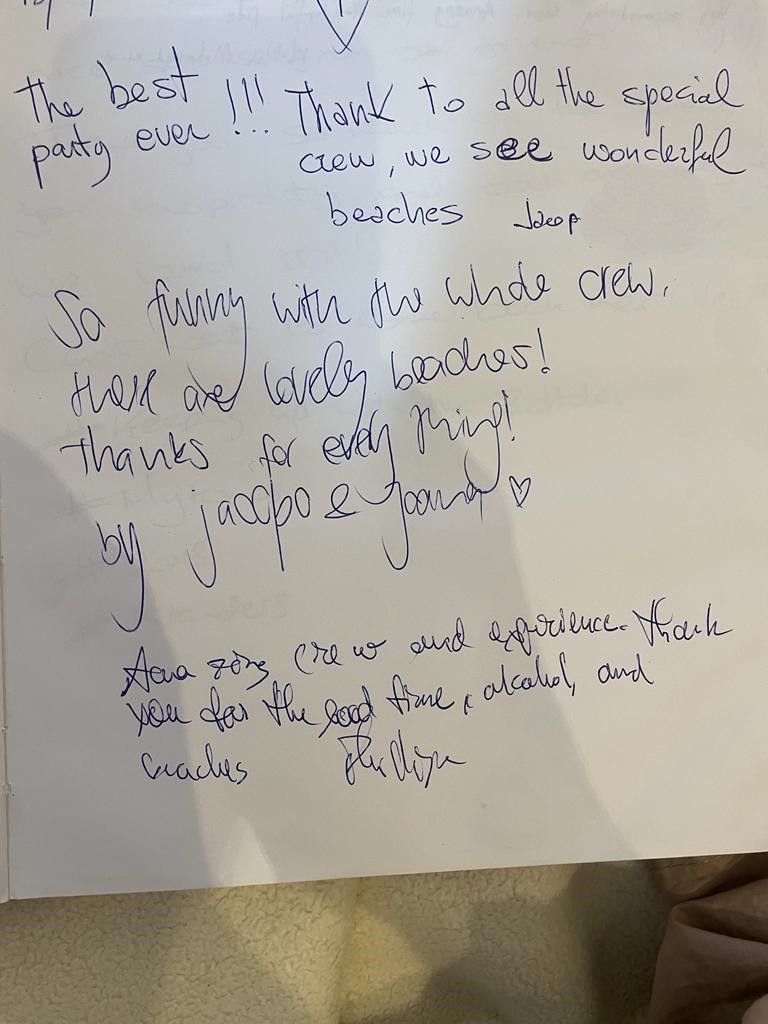 The best
party ever !!!
Thank to all the special
crew, we see wonderful
beaches
So funny with the whole crew.
there are lovely beaches!
thanks for every thing!
by jacopo &
Amazing crew and experience. Thank
you for the good time, alcohol, and